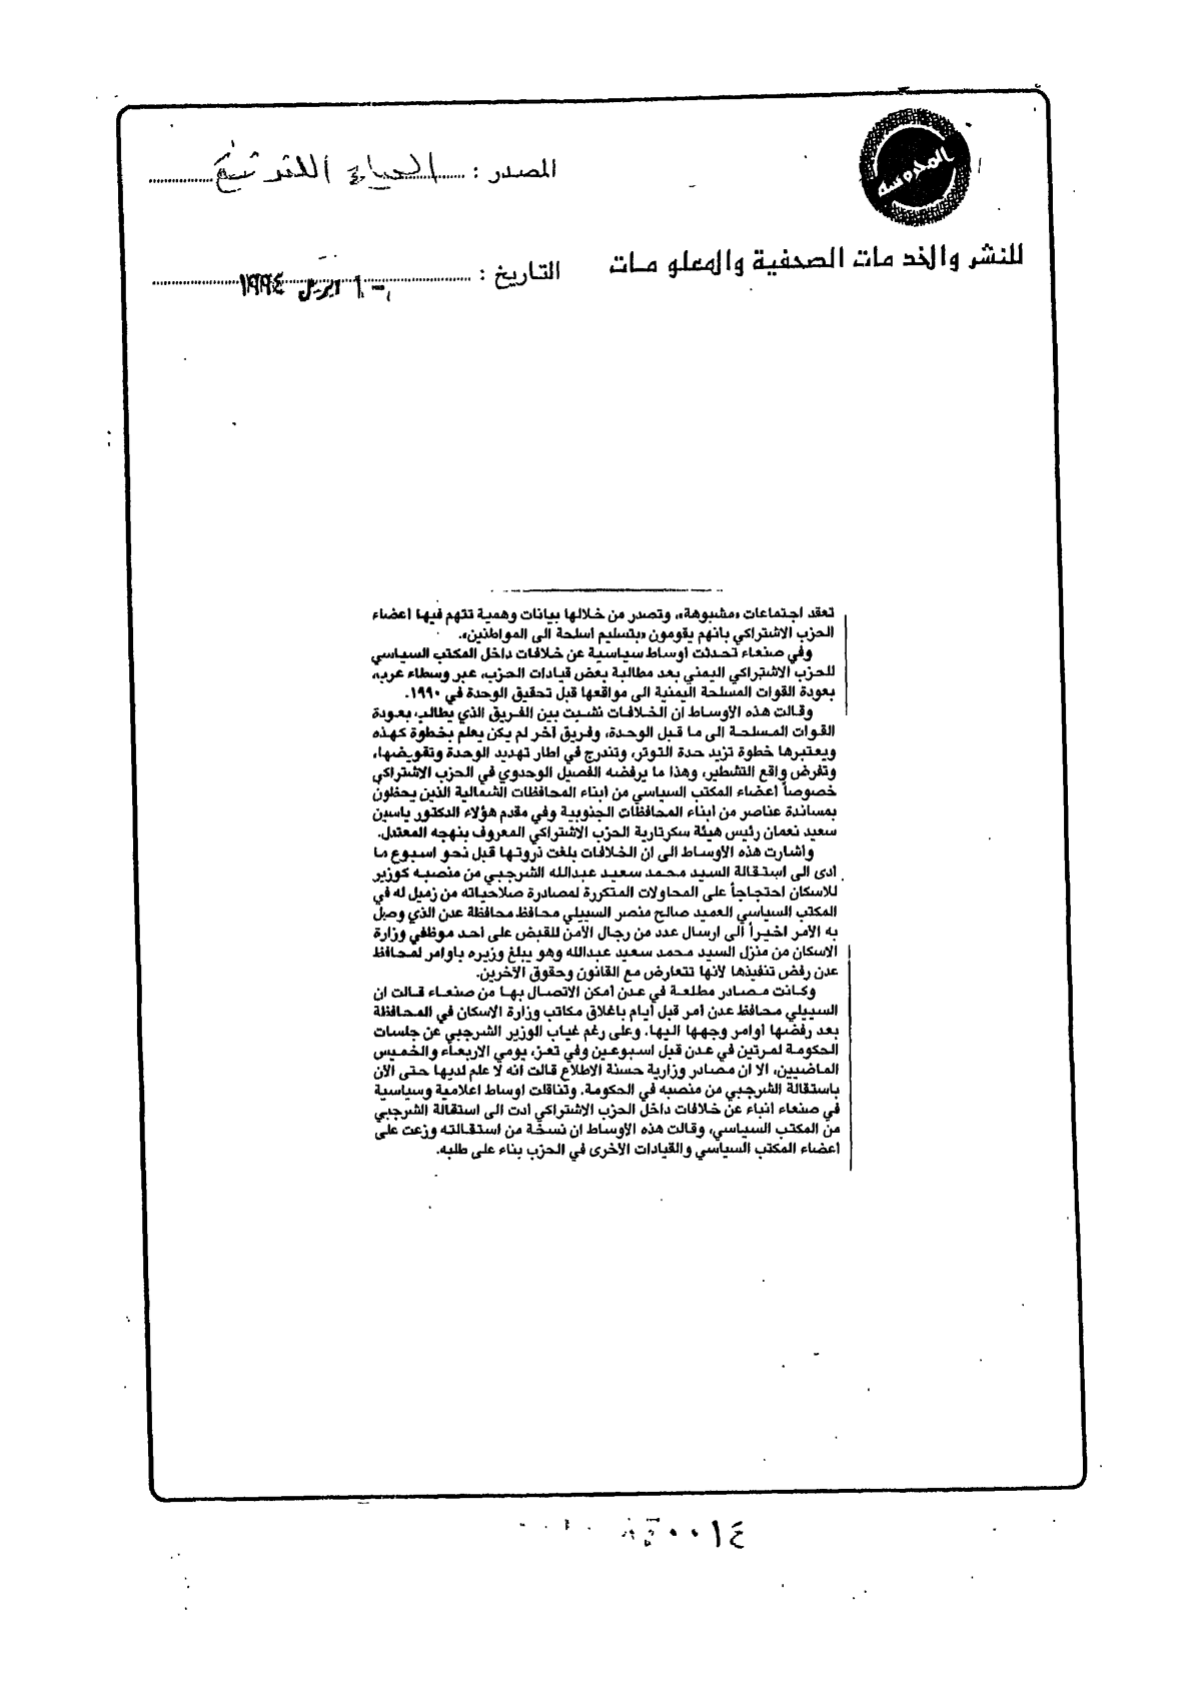 المحروسة
المصدر : الحياة اللندنية
للنشر والخدمات الصحفية والمعلومات
التاريخ : ابريل ١٩٩٤
تعقد اجتماعات «مشبوهة»، وتصدر من خلالها بيانات وهمية تتهم فيها اعضاء
الحزب الاشتراكي بانهم يقومون «بتسليم اسلحة الى المواطنين».
وفي صنعاء تحدثت اوساط سياسية عن خلافات داخل المكتب السياسي
للحزب الاشتراكي اليمني بعد مطالبة بعض قيادات الحزب، عبر وسطاء عرب،
بعودة القوات المسلحة اليمنية الى مواقعها قبل تحقيق الوحدة في ١٩٩٠.
وقالت هذه الأوساط ان الخلافات نشبت بين الفريق الذي يطالب، بعودة
القوات المسلحة الى ما قبل الوحدة، وفريق آخر لم يكن يعلم بخطوة كهذه
ويعتبرها خطوة تزيد حدة التوتر، وتندرج في اطار تهديد الوحدة وتقويضها،
وتفرض واقع التشطير، وهذا ما يرفضه الفصيل الوحدوي في الحزب الاشتراكي
خصوصاً أعضاء المكتب السياسي من ابناء المحافظات الشمالية الذين يحظون
بمساندة عناصر من ابناء المحافظات الجنوبية وفي مقدم هؤلاء الدكتور ياسين
سعيد نعمان رئيس هيئة سكرتارية الحزب الاشتراكي المعروف بنهجه المعتدل.
واشارت هذه الأوساط الى ان الخلافات بلغت ذروتها قبل نحو اسبوع ما
أدى الى استقالة السيد محمد سعيد عبدالله الشرجبي من منصبه كوزير
للاسكان احتجاجاً على المحاولات المتكررة لمصادرة صلاحياته من زميل له في
المكتب السياسي العميد صالح منصر السييلي محافظ محافظة عدن الذي وصل
به الأمر اخيراً الى ارسال عدد من رجال الأمن للقبض على احد موظفي وزارة
الاسكان من منزل السيد محمد سعيد عبدالله وهو يبلغ وزيره باوامر لمحافظ
عدن رفض تنفيذها لأنها تتعارض مع القانون وحقوق الآخرين.
وكانت مصادر مطلعة في عدن أمكن الاتصال بها من صنعاء قالت ان
السييلي محافظ عدن أمر قبل أيام باغلاق مكاتب وزارة الاسكان في المحافظة
بعد رفضها أوامر وجهها اليها. وعلى رغم غياب الوزير الشرجبي عن جلسات
الحكومة لمرتين في عدن قبل اسبوعين وفي تعز، يومي الاربعاء والخميس
الماضيين، الا ان مصادر وزارية حسنة الاطلاع قالت انه لا علم لديها حتى الآن
باستقالة الشرجبي من منصبه في الحكومة. وتناقلت اوساط اعلامية وسياسية
في صنعاء انباء عن خلافات داخل الحزب الاشتراكي أدت الى استقالة الشرجبي
من المكتب السياسي، وقالت هذه الأوساط ان نسخة من استقالته وزعت على
أعضاء المكتب السياسي والقيادات الأخرى في الحزب بناء على طلبه.